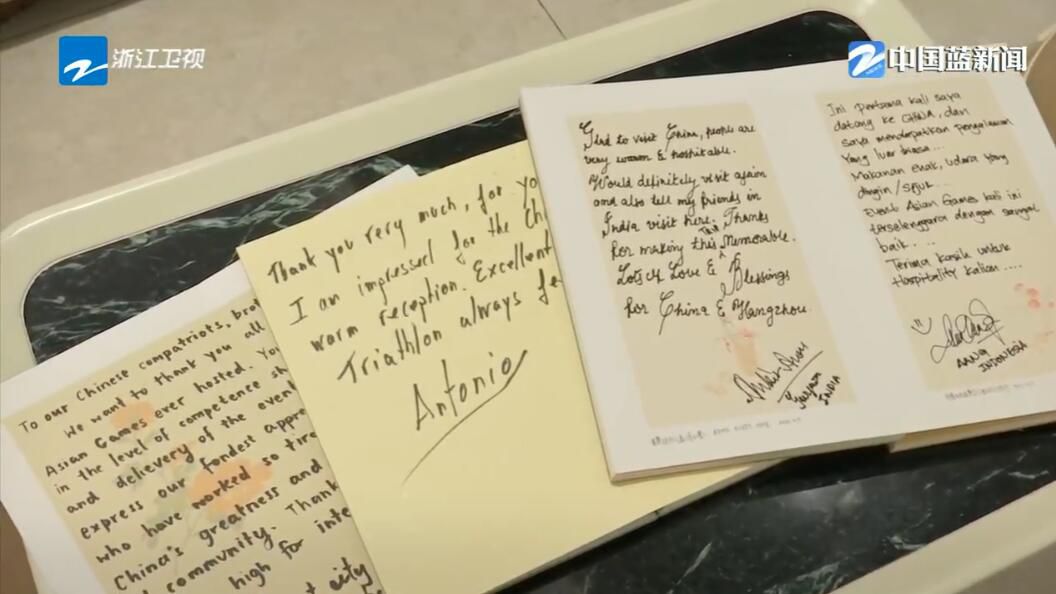 浙江卫视
中国蓝新闻
NEWS
To our Chinese compatriots,
We want to thank you all
Asian Games ever hosted.
in the level of competence
and delievery of the event
express our fondest
who have worked so
China's greatness and
community. Thank
high for
city
Thank you very much, for
I an impressed for the
warm reception. Excellent
Triathlon always
Antonio
Glad to visit China, people are
very warm & hospitable.
Would definitely visit again
and also tell my friends in
India visit here. Thanks
for making this Trip Memorable.
Lots of Love & Blessings
for China & Hangzhou.
INDIA
Ini Pertama kali saya
datang ke CHINA, dan
saya mendapatkan Pengalaman
Yang luar biasa...
Makanan enak, udara yang
dingin / sejuk...
Event Asian Games kali ini
terselenggara dengan sangat
baik....
Terima kasih untuk
Hospitality kalian....
AANG
INDONESIA